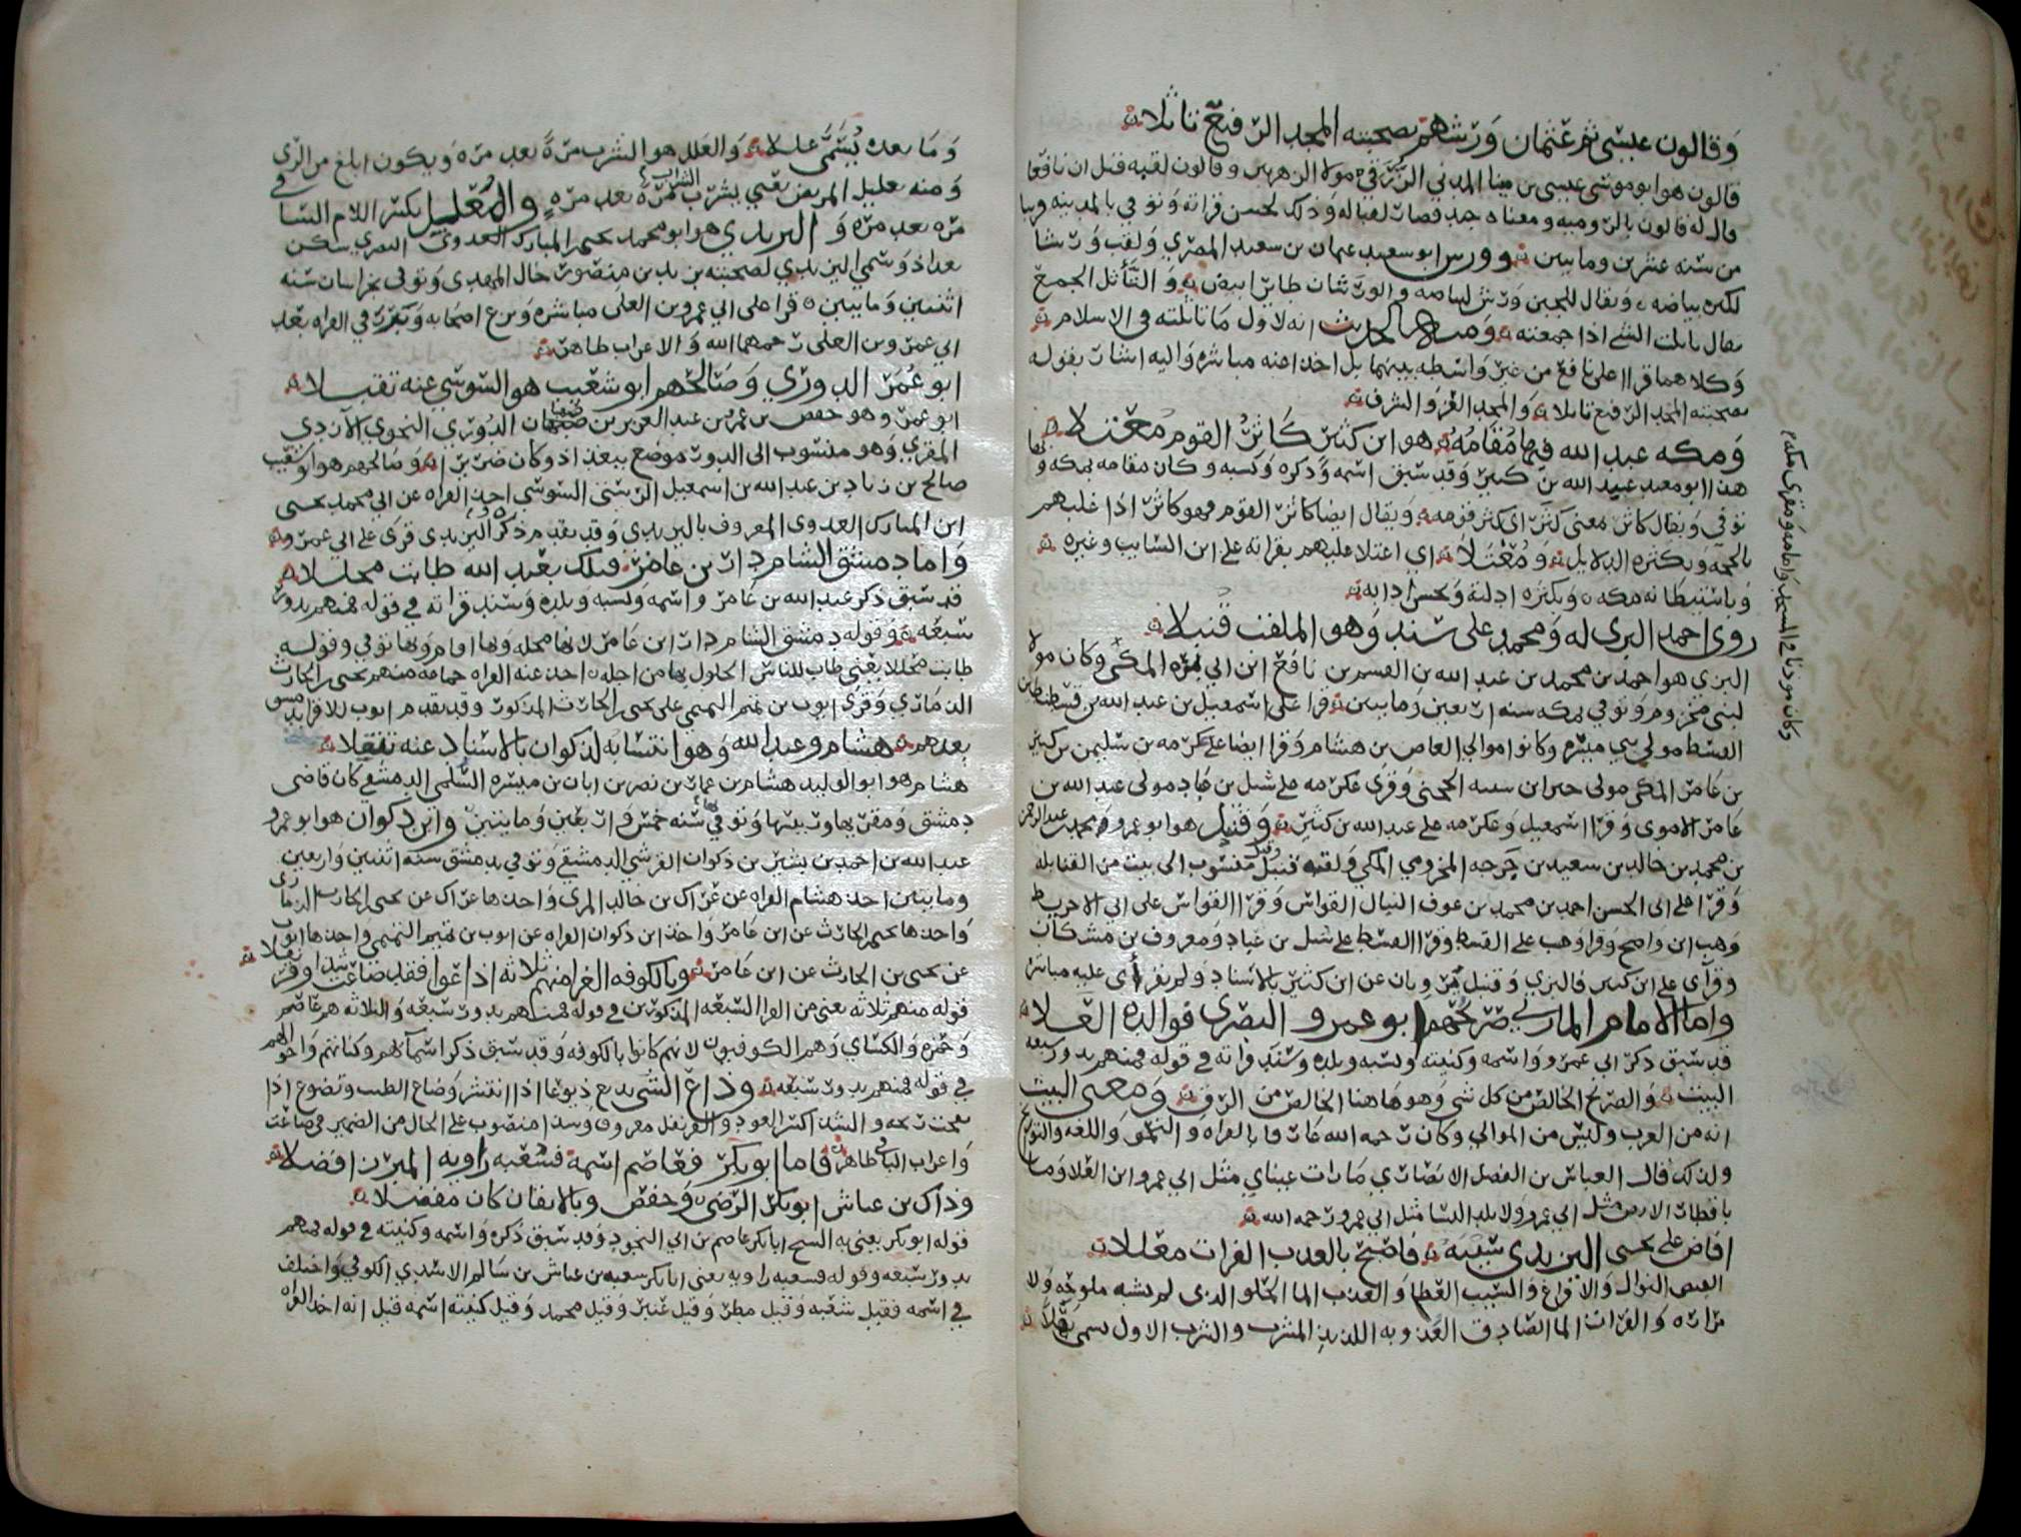 وقالون عيسى ثم عثمان ورشهم بصحبته المجد الرفيع تاثلا
قالون هو ابو موسى عيسى بن مينا المدني الزرقي مولا الزهريين وقالون لقبه قيل ان نافعا
قال له قالون بالروميه ومعناه جيد فصارت لقبا له وذلك لحسن قراته وتوفي بالمدينه قريبا
من سنه عشرين ومايتين وورش ابو سعيد عثمان بن سعيد المصري ولقب ورشا
لكثره بياضه ويقال للجبن ورش لبياضه والورشان طاير ابيض والتأثل الجمع
يقال تاثلت الشي اذا جمعته ومنه الحديث انه لاول مال تاثلته في الاسلام
وكلاهما قرا على نافع من غير واسطه بينهما بل اخذا عنه مباشره واليه اشار بقوله
بصحبته المجد الرفيع تاثلا والمجد العز والشرف
ومكه عبد الله فيها مقامه هو ابن كثير كاثر القوم معتلا
هذا ابو معبد عبد الله بن كثير وقد سبق اسمه وذكره ونسبه وكان مقامه بمكه وبها
توفي ويقال كاثر معنى كثر اي كثر قومه ويقال ايضا كاثر القوم فهو كاثر اذا غلبهم
بالحجه وبكثره الدلايل ومعتلا اي اعتلا عليهم بقراته على ابن السايب وغيره
وباستيطانه مكه وبكثره ادلته وبحسن ادابه
روى احمد البزي له ومحمد على سند وهو الملقب قنبلا
البزي هو احمد بن محمد بن عبد الله بن القسم بن نافع ابن ابي بزه المكي وكان مولا
لبني مخزوم وتوفي بمكه سنه اربعين ومايتين قرا على اسمعيل بن عبد الله بن قسطنطين
القسط مولي بني ميسره وكانوا موالي العاص بن هشام وقرا ايضا على عكرمه بن سليمن بن كثير
بن عامر المكي مولى جبر ابن شيبه الحجبي وقرى عكرمه على شبل بن عباد مولى عبد الله بن
عامر الاموي وقرا اسمعيل وعكرمه على عبد الله بن كثير وقنبل هو ابو عمرو محمد بن عبد الرحمن
بن محمد بن خالد بن سعيد بن جرجه المخزومي المكي ولقبه قنبل وقيل منسوب الى بيت من القنابله
وقرا على ابى الحسن احمد بن محمد بن عوف النبال القواس وقرا القواس على ابي الاخريط
وهب ابن واضح وقرا وهب على القسط وقرا القسط على شبل بن عباد ومعروف بن مشكان
وقرآى على ابن كثير فالبزي وقنبل يرويان عن ابن كثير بالاسناد ولم يقرأى عليه مباشره
واما الامام المازني صريحهم ابو عمرو البصري فوالده العلا
قد سبق ذكر ابي عمرو واسمه وكنيته ونسبه وبلده وسند قراته في قوله فمنهم بدور سبعه
البيت والصريح الخالص من كل شي وهو هاهنا الخالص من الرق ومعنى البيت
انه من العرب وليس من الموالي وكان رحمه الله عارفا بالقراه والنحو واللغه والتواريخ
ولذلك قال العباس بن الفضل الانصاري ما رات عيناي مثل ابي عمرو ابن العلا وما
باقطار الارض مثل ابي عمرو ولا يلد النسا مثل ابي عمرو رحمه الله
افاض على يحيى اليزيدي سيبه فاصبح بالعذب الفرات معللا
الفيض النوال والافراغ والسيب العطا والعذب الما الحلو الذي لم يشبه ملوحه ولا
مراره والفرات الما الصادق العذوبه اللذيذ المشرب والشرب الاول يسمى نهلا
وكان موذنا في المسجد واماما ومقرى مكه
وما بعده يسمى عللا والعلل هو الشرب مرة بعد مره ويكون ابلغ من الري
ومنه تعليل المريض يعني بشرب الشراب مرة بعد مره والمعلل بكسر اللام الساقي
مره بعد مره واليزيدي هو ابو محمد يحيى بن المبارك العدوي البصري سكن
بغداد وسمي اليزيدي لصحبته يزيد بن منصور خال المهدي وتوفي بخراسان سنه
اثنتين ومايتين قرا على ابي عمرو بن العلى مباشره وبرع اصحابه وتقرر في القراه بعد
ابي عمرو بن العلى رحمهما الله والاعراب ظاهر
ابو عمر الدوري وصالحهم ابو شعيب هو السوسي عنه تقبلا
ابو عمر وهو حفص بن عمر بن عبد العزيز بن صهبان الدوري النحوي الازدي
المقري وهو منسوب الى الدور موضع ببغداد وكان ضريرا وصالحهم هو ابو شعيب
صالح بن زياد بن عبد الله بن اسمعيل الرستبي السوسي اخذا القراه عن ابي محمد يحيى
ابن المبارك العدوي المعروف باليزيدي وقد تقدم ذكره اليزيدي قرى على ابي عمرو
واما دمشق الشام دار بن عامر فتلك بعبد الله طابت محللا
قد سبق ذكر عبد الله بن عامر واسمه ونسبه وبلده وسند قراته في قوله فمنهم بدور
سبعه وقوله دمشق الشام دار ابن عامر لانها محله وبها اقام وبها توفي وقوله
طابت محللا يعني طاب للناس الحلول بها من اجله اخذ عنه القراه جماعه منهم يحيى بن الحارث
الذماري وقرى ايوب بن تميم التميمي على يحيى بن الحارث المذكور وقد تقدم ايوب للاقرا بدمشق
بعدهم هشام وعبد الله وهو انتسابه لذكوان بالاسناد عنه تنقلا
هشام هو ابو الوليد هشام بن عمار بن نصر بن ابان بن ميسره السلمي الدمشقي كان قاضي
دمشق ومقريها وتوفي بها سنه خمس واربعين ومايتين وابن ذكوان هو ابو عمرو
عبد الله بن احمد بن بشير بن ذكوان القرشي الدمشقي وتوفي بدمشق سنه اثنتين واربعين
ومايتين اخذ هشام القراه عن عراك بن خالد المري واخذها عراك عن يحيى الحارث الذماري
واخذها يحيى بن الحارث عن ابن عامر واخذ ابن ذكوان القراه عن ايوب بن تميم التميمي واخذها ايوب
عن يحيى بن الحارث عن ابن عامر وبالكوفه الغرا منهم ثلاثه اذاعوا فقد ضاعت شذا وقرنفلا
قوله منهم ثلاثه يعني من القرا السبعه المذكورين في قوله فمنهم بدور سبعه والثلاثه هم عاصم
وحمزه والكساي وهم الكوفيون لانهم كانوا بالكوفه وقد سبق ذكر اسمآهم وكناهم واحوالهم
في قوله فمنهم بدور سبعه وذاع الشي يذيع ذيوعا اذا انتشر وضاع الطيب وتضوع اذا
نفحت رايحته والشذا كسر العود والقرنفل معروف وشذا منصوب على الحال من الضمير في ضاعت
واعراب الباقي ظاهر فاما ابو بكر فعاصم اسمه فشعبه راويه المبرز افضلا
وذاك بن عياش ابو بكر الرضى وحفص وبالاتقان كان مفضلا
قوله ابو بكر يعني به الشيخ ابا بكر عاصم بن ابي النجود وقد سبق ذكره واسمه وكنيته في قوله فمنهم
بدور سبعه وقوله فشعبه راويه يعني ابا بكر شعبه بن عياش بن سالم الاسدي الكوفي واختلف
في اسمه فقيل شعبه وقيل مطر وقيل عنتر وقيل محمد وقيل كنيته اسمه قيل انه اخذ القراه